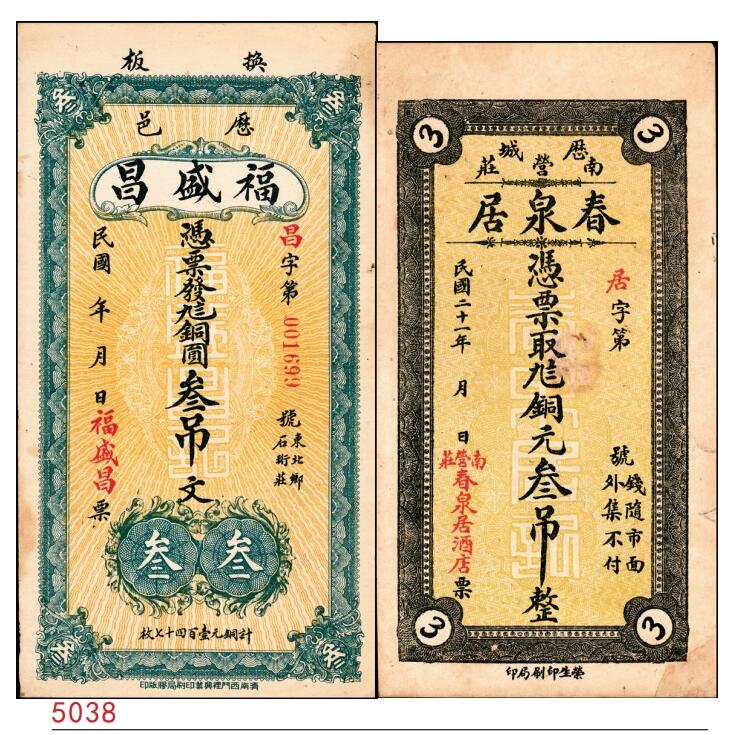 換板
歷邑
福盛昌
昌字第001699號
東北鄉
石街莊
憑票發九銅圓叁吊文
民國 年 月 日福盛昌票
叁 叁
計銅元壹百四十七枚
濟南西門裡興業印刷局膠版印
3 3
歷城
南營莊
春泉居
居字第 號
錢隨市面
外集不付
憑票取九銅元叁吊整
民國二十一年 月 日南營莊春泉居酒店票
3 3
榮生印刷局印
5038